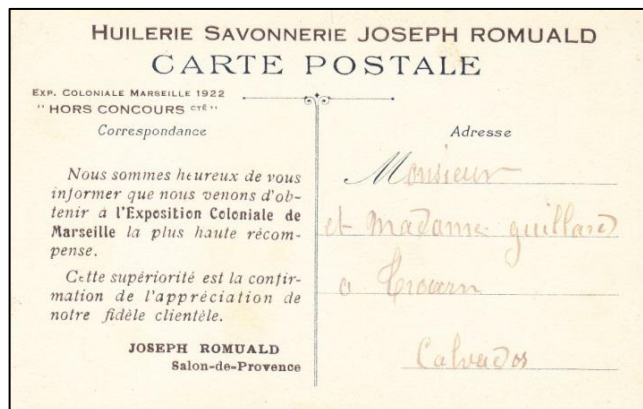 HUILERIE SAVONNERIE JOSEPH ROMUALD
CARTE POSTALE
EXP. COLONIALE MARSEILLE 1922
" HORS CONCOURS CTÉ "
Correspondance
Nous sommes heureux de vous
informer que nous venons d'ob-
tenir à l'Exposition Coloniale de
Marseille la plus haute récom-
pense.
Cette supériorité est la confir-
mation de l'appréciation de
notre fidèle clientèle.
JOSEPH ROMUALD
Salon-de-Provence
Adresse
Monsieur
et Madame guillard
a Troarn
Calvados